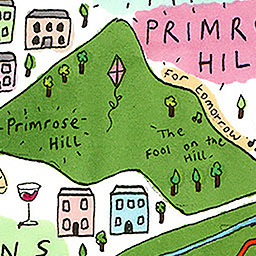 PRIMR
HIL
for tomorrow
Primrose
Hill
The
Fool on the
Hill
NS